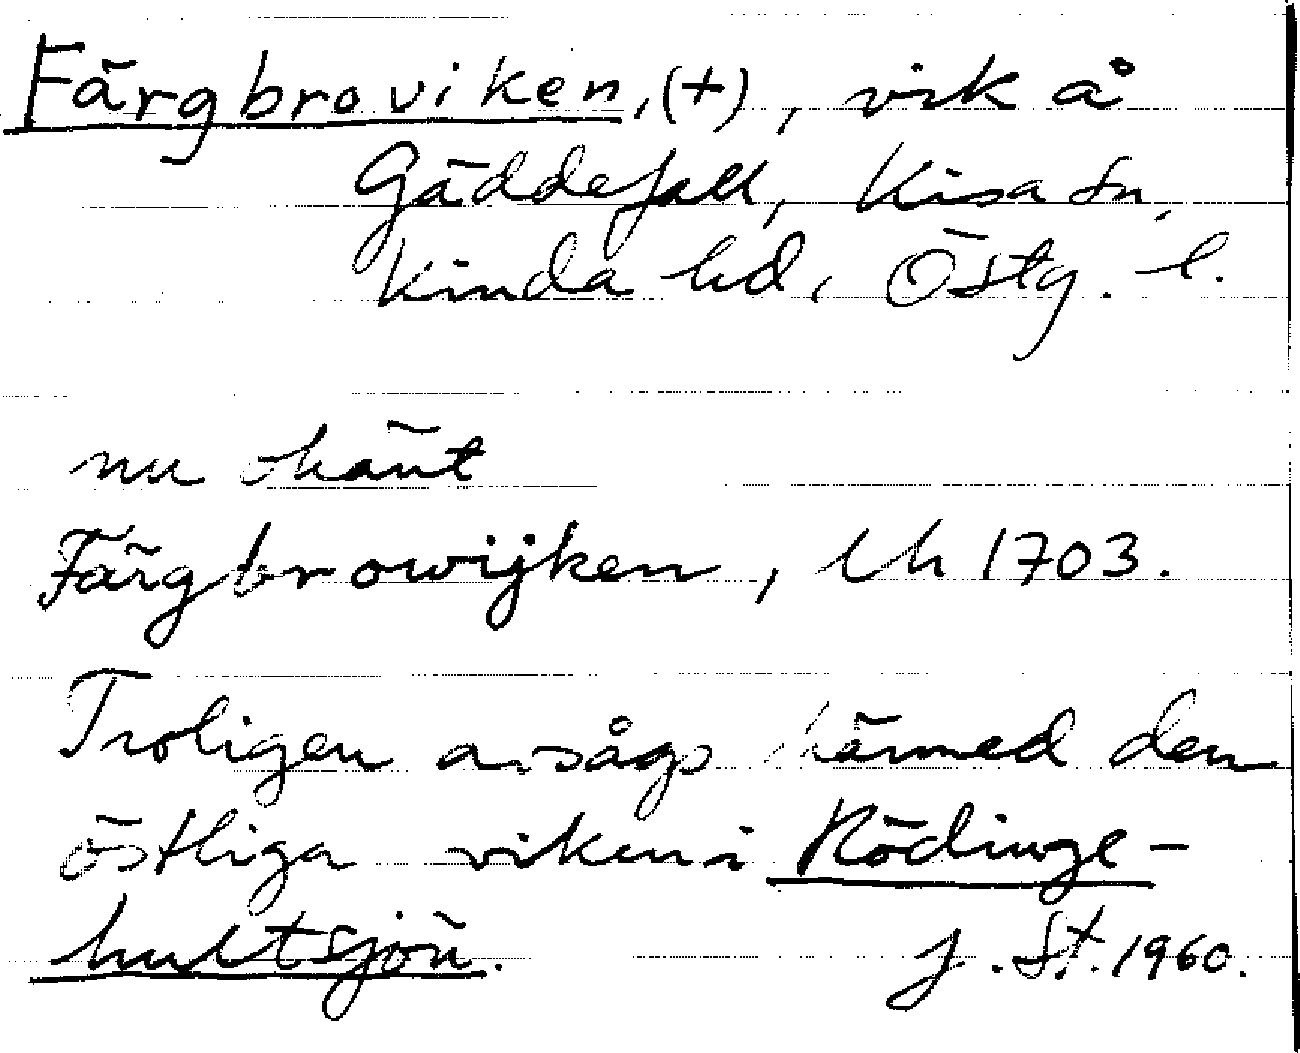 Färgbroviken, (+), vik å
Gäddefall, Kisa sn,
Kinda hd, Östg. l.
nu okänt
Färgbrowijken, Uh 1703.
Troligen avsågs härmed den
östliga viken i Rödinge-
hultsjön. J. St. 1960.